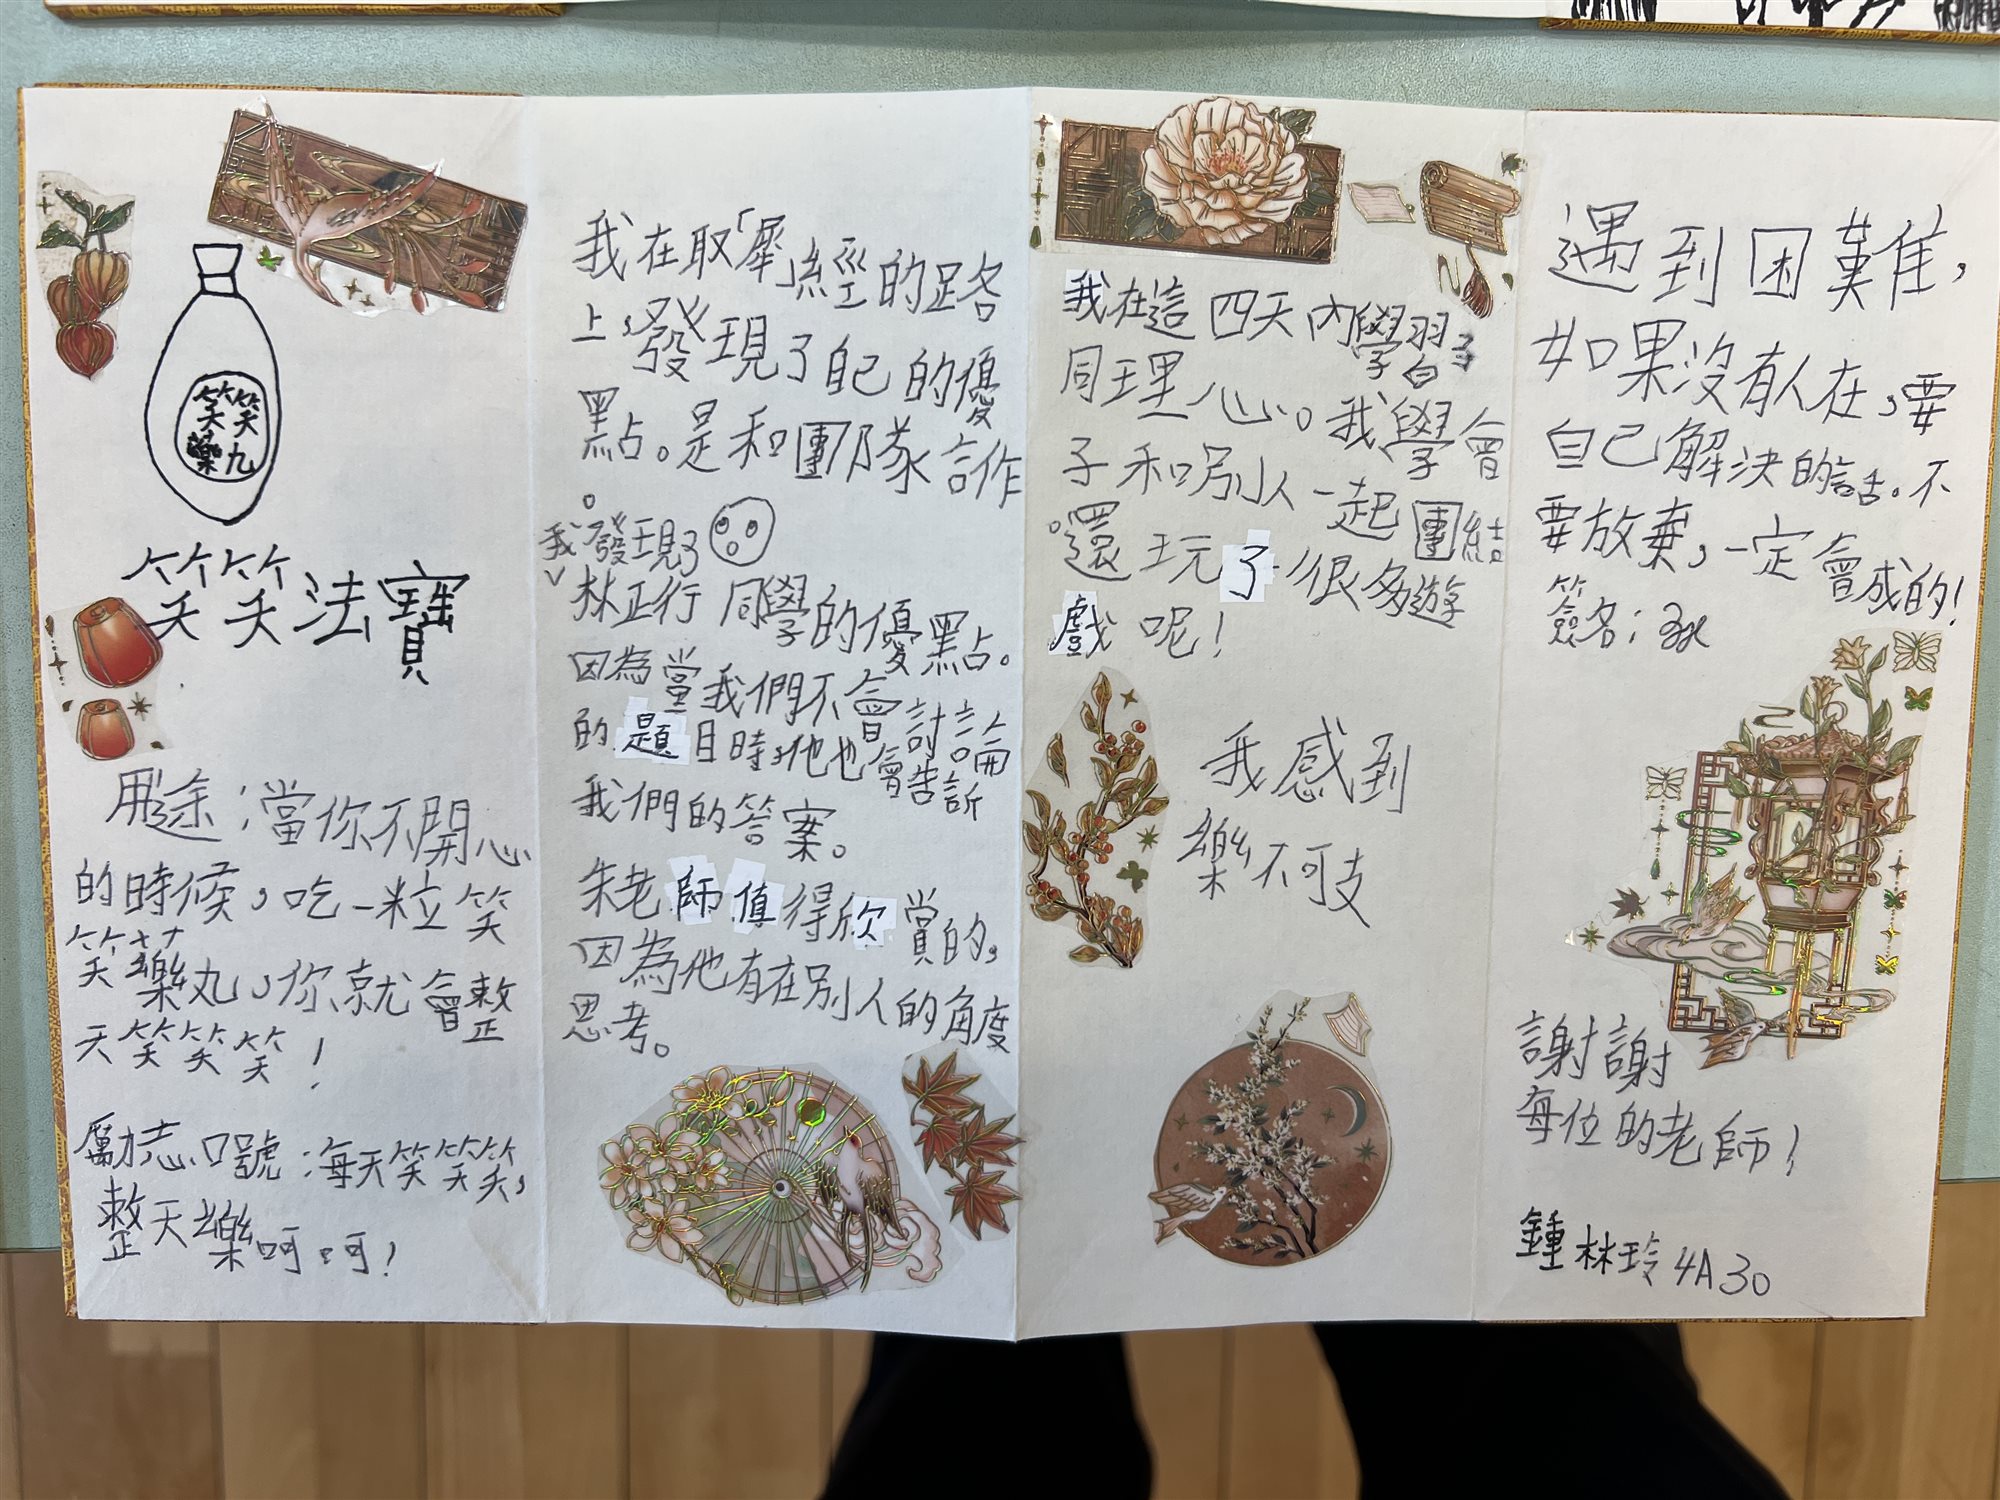 笑笑
藥丸
笑笑法寶
用途：當你不開心
的時候，吃一粒笑
笑藥丸，你就會整
天笑笑笑！
勵志口號：每天笑笑笑，
整天樂呵呵！
我在取「犀」經的路
上，發現了自己的優
點。是和團隊合作
。
我發現了
林正行同學的優點。
因為當我們不會討論
的題目時，他也會告訴
我們的答案。
朱老師值得欣賞的，
因為他有在別人的角度
思考。
我在這四天內學習了
同理心。我學會
了和別人一起團結
。還玩了很多遊
戲呢！
我感到
樂不可支
遇到困難，
如果沒有人在，要
自己解決的話。不
要放棄，一定會成的！
簽名：
謝謝
每位的老師！
鍾林玲 4A30